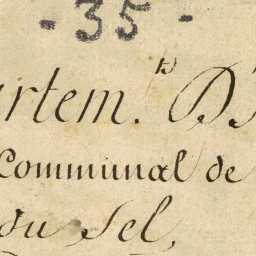 - 35 -
artem.t D'
Communal de
du Sel,